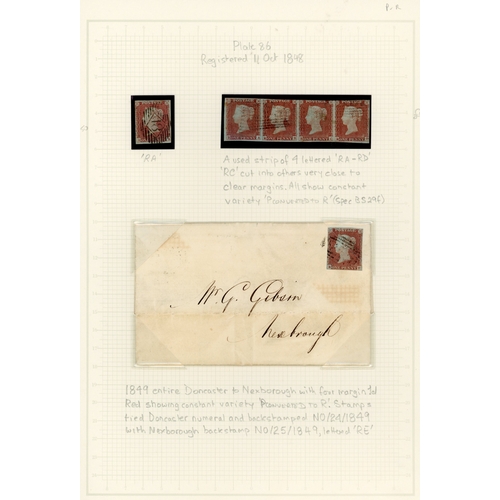 P. X
Plate 86
Registered 11 Oct 1848
'RA'
A used strip of 4 lettered 'RA-RD'
'RC' cut into others very close to
clear margins. All show constant
variety 'P converted to R' (Spec BS29f)
Mr. G. Gibson
Mexbrough
1849 entire Doncaster to Nexborough with four margin 1d
Red showing constant variety 'P converted to R'. Stamps
tied Doncaster numeral and backstamped NO/24/1849
with Nexborough backstamp NO/25/1849, lettered 'RE'